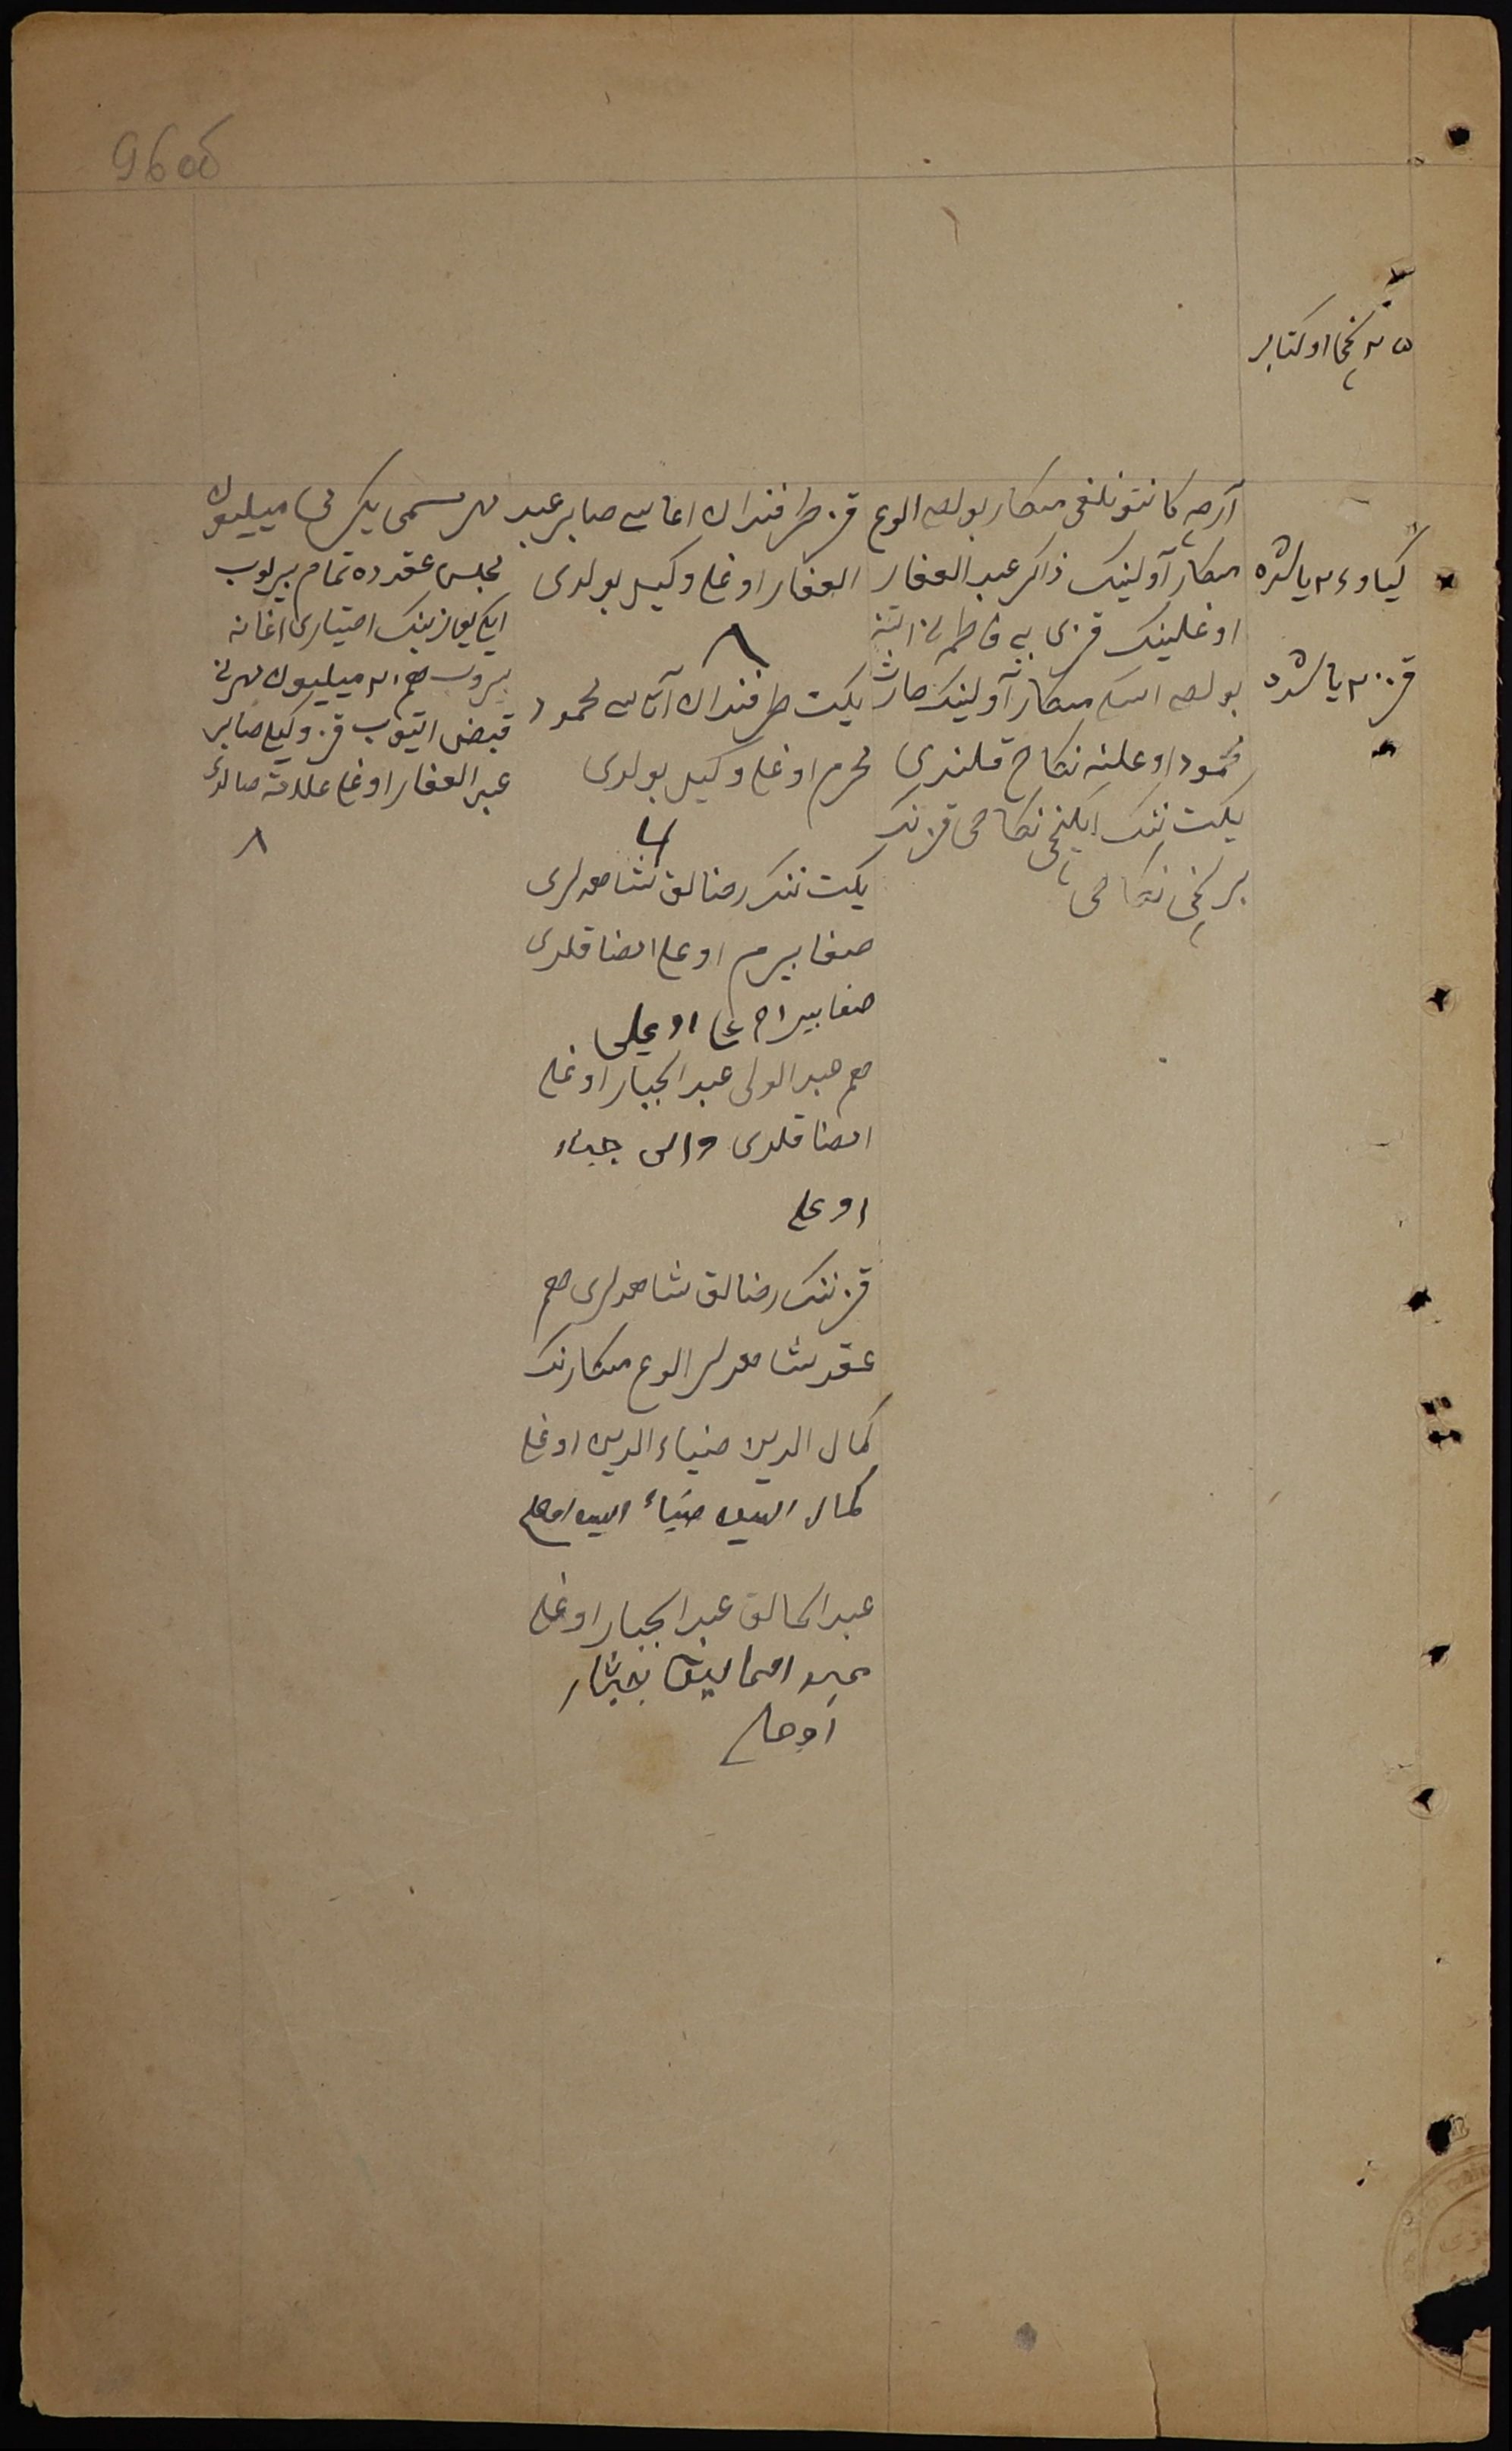 96 об
٢٥ نچی اوکتابر
کیاو ٢٤ یاشده
قز ٢٠ یاشده
آرچه کانتونلغی منکار بولص الوغ
منکار آولینک ذاکر عبد الغفار
اوغلینک قزی بی فاطمه نی اشبو
بولص اسکی منکار آولینک حارث
محمود اوغلینه نکاح قلندی
یکت ننک ایکنچی نکاحی قزننک
برنچی نکاحی
قز طرفندان اغاسی صابر عبد
الغفار اوغلی وکیل بولدی
یکت طرفندان آتاسی محمود
محرم اوغلی وکیل بولدی
یکت ننک رضالق شاهدلری
صفا بیرم اوغلی امضا قلدی
صفا بیرام اوغلی
هم عبد الولی عبد الجبار اوغلی
امضا قلدی والی جبار
اوغلی
قزننک رضالق شاهدلری هم
عقد شاهدلر الوغ منکارنک
کمال الدین ضیاء الدین اوغلی
کمال الدین ضیاء الدین اوغلی
عبد الخالق عبد الجبار اوغلی
اوغلی
مهر مسمی یکرمی میلیون
مجلس عقدده تمام بیرلوب
هم ٢٠ میلیون مهرنی
قبض ایتوب قز وکیلی صابر
عبد الغفار اوغلی علامة صالدی